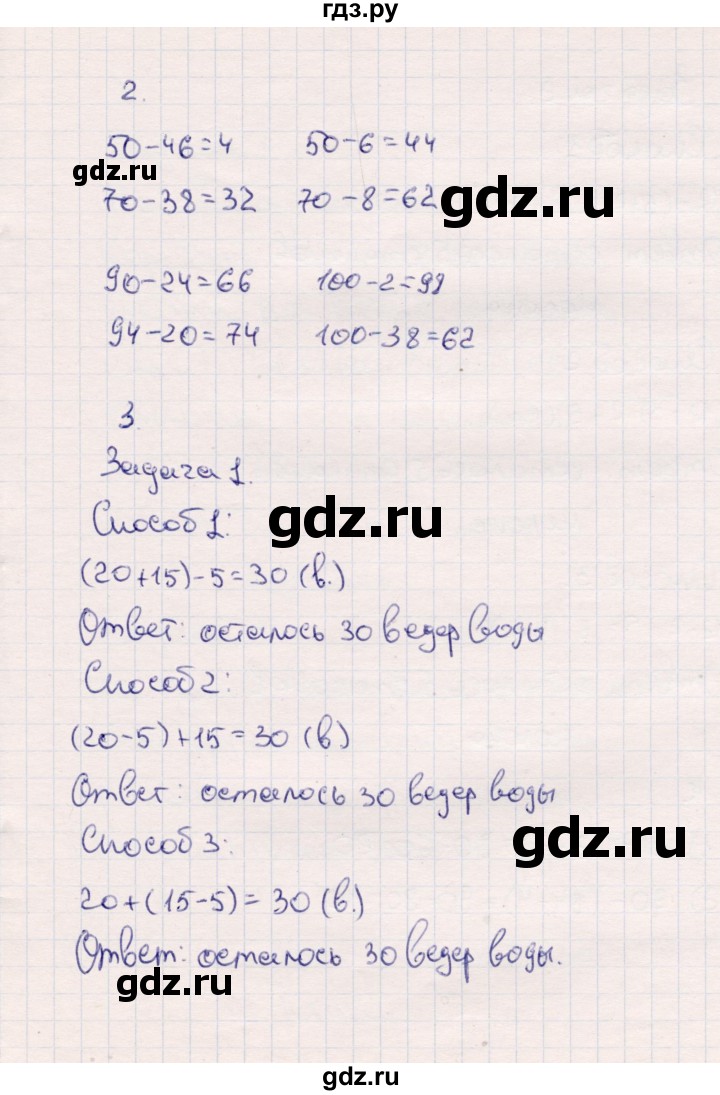 гдз.ру
2.
50-46=4 50-6=44
gdz.ru
70-38=32 70-8=62
gdz.ru
90-24=66 100-2=98
94-20=74 100-38=62
3.
Задача 1.
Способ 1:
gdz.ru
(20+15)-5=30 (в.)
Ответ: осталось 30 ведер воды
Способ 2:
(20-5)+15=30 (в)
Ответ: осталось 30 ведер воды
gdz.ru
Способ 3:
20+(15-5)=30 (в.)
Ответ: осталось 30 ведер воды.
gdz.ru
gdz.ru